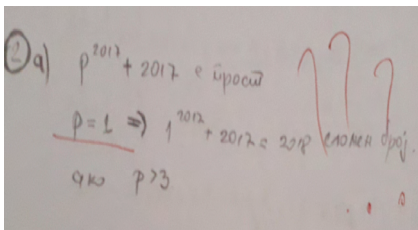 ② а) p^2017 + 2017 е прост
p = 1 ⇒ 1^2017 + 2017 = 2018 сложен број.
ако p > 3